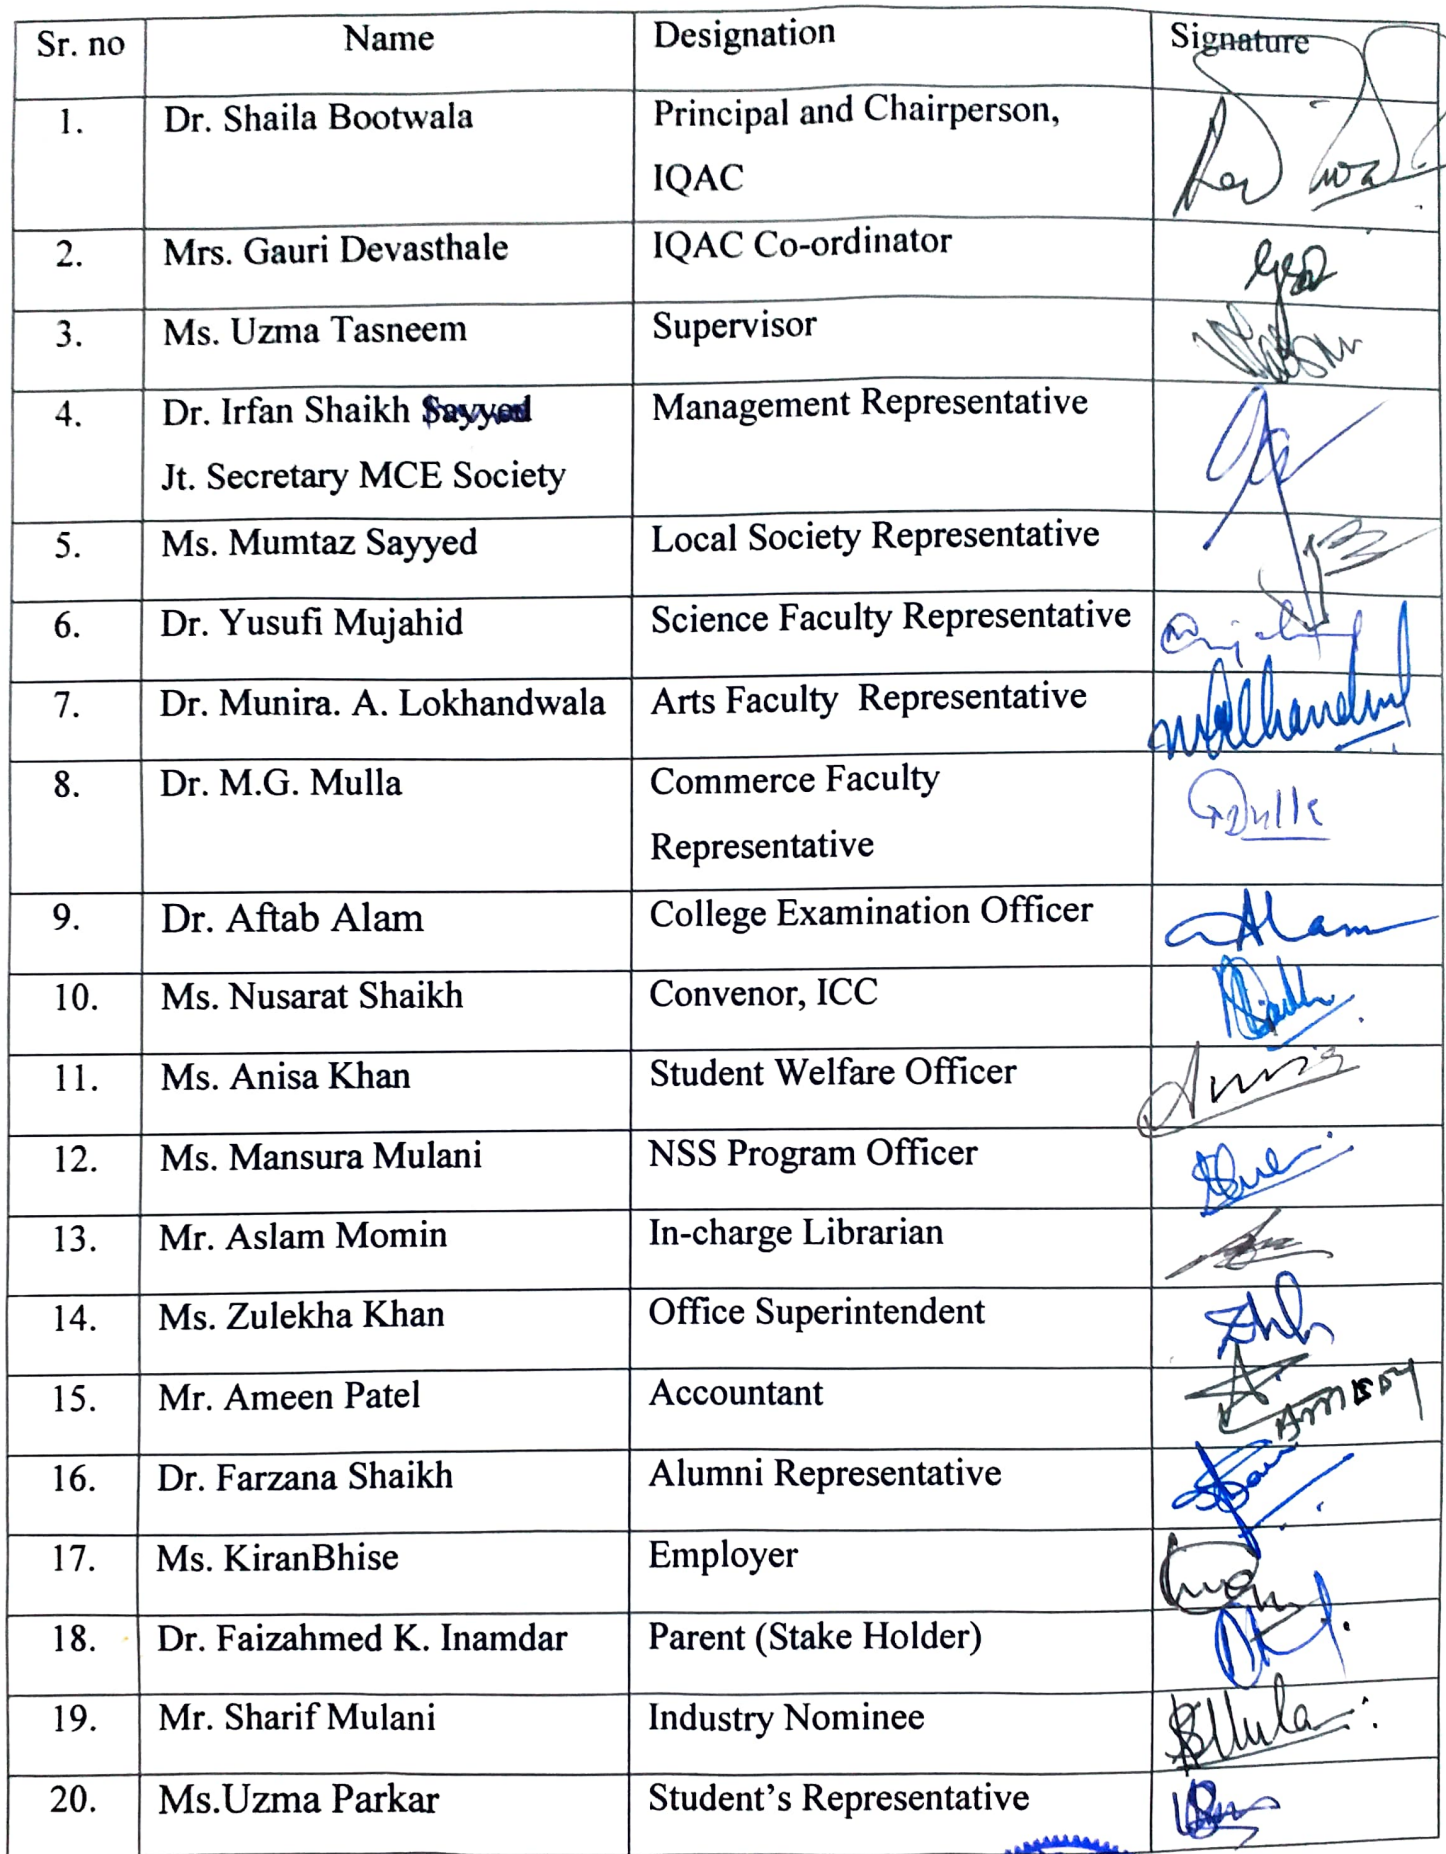 Sr. no Name Designation Signature
1. Dr. Shaila Bootwala Principal and Chairperson,
IQAC
2. Mrs. Gauri Devasthale IQAC Co-ordinator
3. Ms. Uzma Tasneem Supervisor
4. Dr. Irfan Shaikh Sayyed Management Representative
Jt. Secretary MCE Society
5. Ms. Mumtaz Sayyed Local Society Representative
6. Dr. Yusufi Mujahid Science Faculty Representative
7. Dr. Munira. A. Lokhandwala Arts Faculty Representative
8. Dr. M.G. Mulla Commerce Faculty
Representative
9. Dr. Aftab Alam College Examination Officer Alam
10. Ms. Nusarat Shaikh Convenor, ICC
11. Ms. Anisa Khan Student Welfare Officer
12. Ms. Mansura Mulani NSS Program Officer
13. Mr. Aslam Momin In-charge Librarian
14. Ms. Zulekha Khan Office Superintendent
15. Mr. Ameen Patel Accountant
16. Dr. Farzana Shaikh Alumni Representative
17. Ms. KiranBhise Employer
18. Dr. Faizahmed K. Inamdar Parent (Stake Holder)
19. Mr. Sharif Mulani Industry Nominee
20. Ms.Uzma Parkar Student's Representative